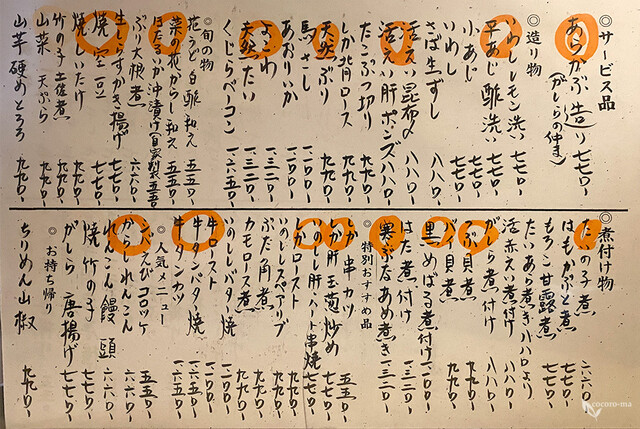 ◎サービス品
あらかぶ造り 七七〇-
(がしらの仲ま)
◎造り物
いわしレモン洗い 七七〇-
平あじ酢洗い 七七〇-
小あじ 七七〇-
いわし 七七〇-
さば生ずし 八八〇-
活えい昆布〆 八八〇-
活えい肝ポンズ 八八〇-
たこぶつ切り 九九〇-
しか背ロース 九九〇-
天然ぶり 九九〇-
馬さし 一一〇〇-
あおりいか 一一〇〇-
よこわ 一三二〇-
天然たい 一三二〇-
くじらベーコン 一六五〇-
◎旬の物
花うど白酢和え 五五〇-
菜の花からし和え 五五〇-
ほたるいか沖漬け(自家製) 五五〇-
ぶり大根煮 六六〇-
生しらすかき揚げ 七七〇-
焼空豆 七七〇-
焼しいたけ 七七〇-
竹の子土佐煮 九九〇-
山菜天ぷら 九九〇-
山芋硬めとろろ 九九〇-
◎煮付け物
たいの子煮 六六〇-
はもかぶと煮 七七〇-
もろこ甘露煮 七七〇-
たいあら煮 八八〇より
活赤えい煮付け 八八〇-
がしら煮付け 八八〇-
つぶ貝煮 九九〇-
バイ貝煮 九九〇-
黒めばる煮付け 一一〇〇-
はた煮付け 一三二〇-
寒ぶなあめ煮き 一三二〇-
◎特別おすすめ品
しか串カツ 五五〇-
しか肝玉葱炒め 七七〇-
いのしし肝・ハート串焼 七七〇-
しかロースト 九九〇-
いのししスペアリブ 九九〇-
ぶた角煮 九九〇-
カモロース煮 九九〇-
いのししバター焼 一一〇〇-
牛ロースト 一一〇〇-
牛タンバター焼 一六五〇-
牛タンカツ 一六五〇-
◎人気メニュー
エンパえびコロッケ 五五〇-
からしれんこん 六六〇-
れんこん饅頭 六六〇-
焼竹の子 七七〇-
がしら唐揚げ 七七〇-
◎お持ち帰り
ちりめん山椒 九九〇-
cocoro-ma